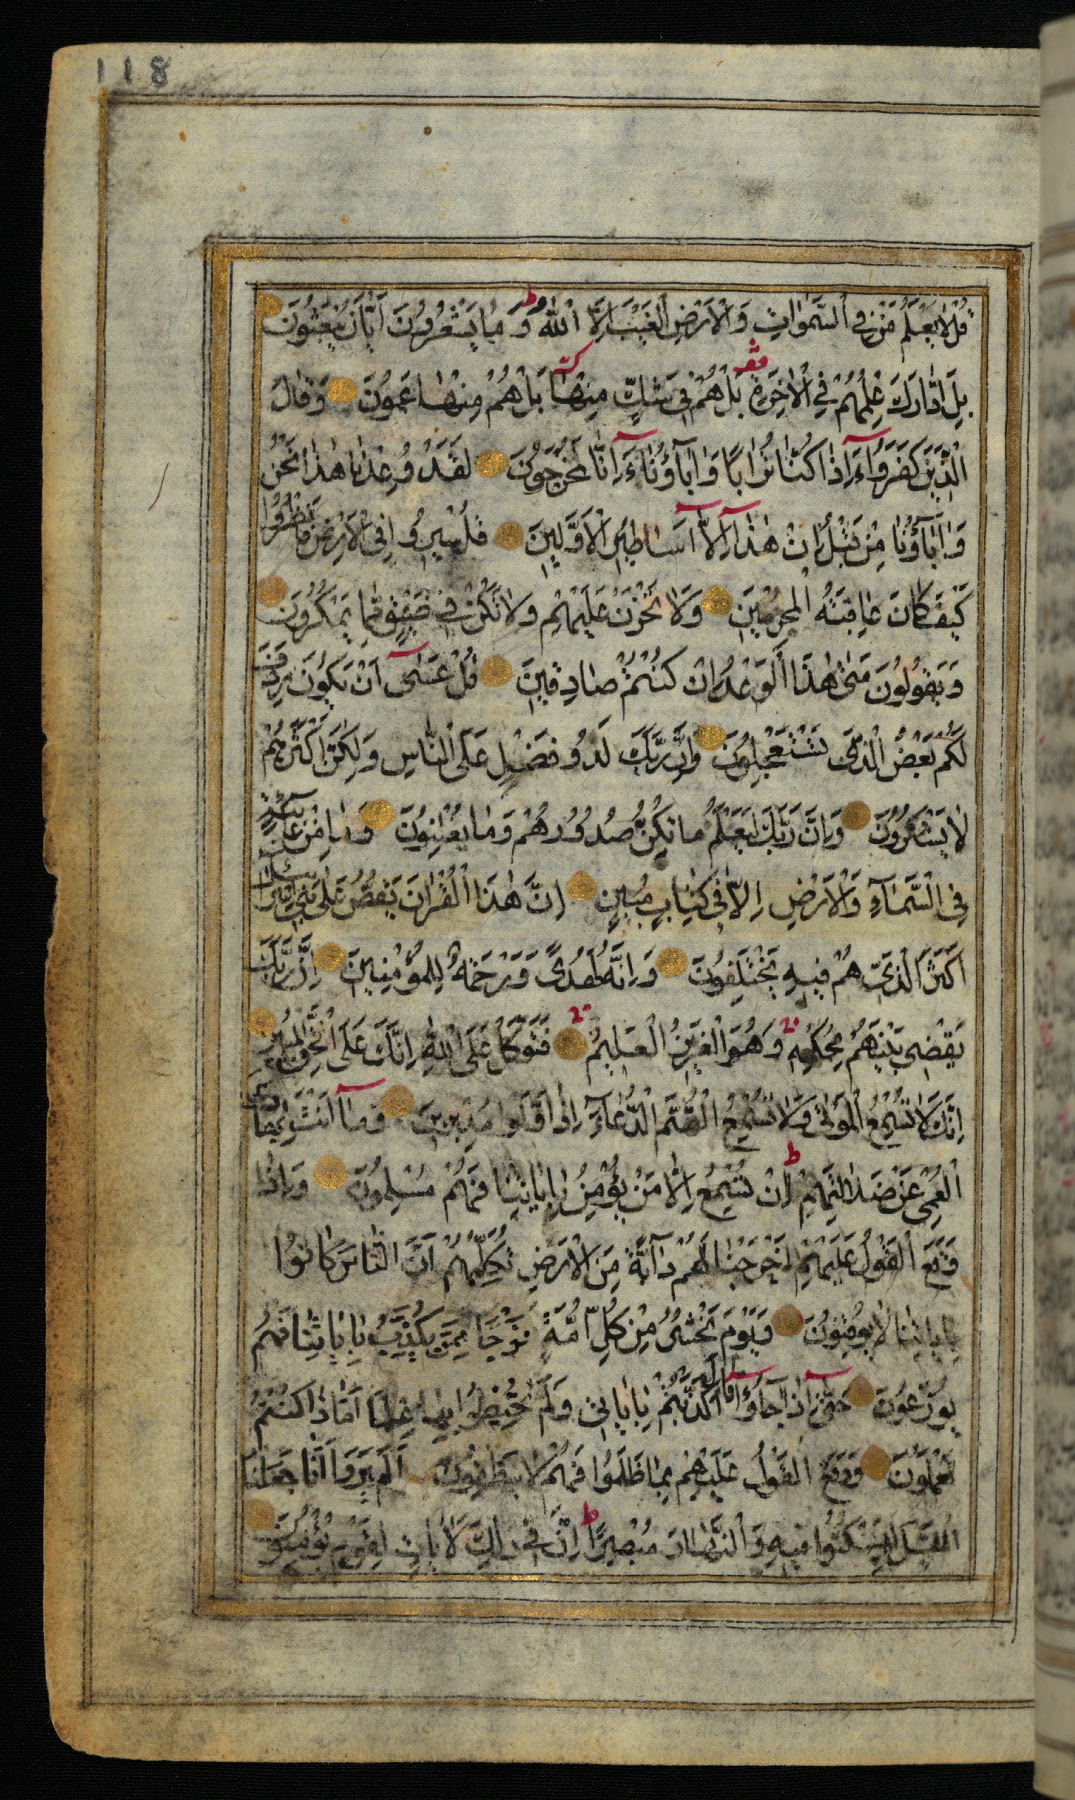 118
قُلْ لَا يَعْلَمُ مَنْ فِي السَّمٰوَاتِ وَالْاَرْضِ الْغَيْبَ اِلَّا اللّٰهُ ط وَمَا يَشْعُرُونَ اَيَّانَ يُبْعَثُونَ
بَلِ ادَّارَكَ عِلْمُهُمْ فِي الْاٰخِرَةِ بَلْ هُمْ فِي شَكٍّ مِنْهَا بَلْ هُمْ مِنْهَا عَمُونَ وَقَالَ
الَّذِينَ كَفَرُوا ءَاِذَا كُنَّا تُرَابًا وَاٰبَآؤُنَا ءَاِنَّا لَمُخْرَجُونَ لَقَدْ وُعِدْنَا هٰذَا نَحْنُ
وَاٰبَآؤُنَا مِنْ قَبْلُ اِنْ هٰذَا اِلَّآ اَسَاطِيرُ الْاَوَّلِينَ قُلْ سِيرُوا فِي الْاَرْضِ فَانْظُرُوا
كَيْفَ كَانَ عَاقِبَةُ الْمُجْرِمِينَ وَلَا تَحْزَنْ عَلَيْهِمْ وَلَا تَكُنْ فِي ضَيْقٍ مِمَّا يَمْكُرُونَ
وَيَقُولُونَ مَتٰى هٰذَا الْوَعْدُ اِنْ كُنْتُمْ صَادِقِينَ قُلْ عَسٰىٓ اَنْ يَكُونَ رَدِفَ
لَكُمْ بَعْضُ الَّذِي تَسْتَعْجِلُونَ وَاِنَّ رَبَّكَ لَذُو فَضْلٍ عَلَى النَّاسِ وَلٰكِنَّ اَكْثَرَهُمْ
لَا يَشْكُرُونَ وَاِنَّ رَبَّكَ لَيَعْلَمُ مَا تُكِنُّ صُدُورُهُمْ وَمَا يُعْلِنُونَ وَمَا مِنْ غَآئِبَةٍ
فِي السَّمَآءِ وَالْاَرْضِ اِلَّا فِي كِتَابٍ مُبِينٍ اِنَّ هٰذَا الْقُرْاٰنَ يَقُصُّ عَلٰى بَنِي اِسْرَآئِيلَ
اَكْثَرَ الَّذِي هُمْ فِيهِ يَخْتَلِفُونَ وَاِنَّهُ لَهُدًى وَرَحْمَةٌ لِلْمُؤْمِنِينَ اِنَّ رَبَّكَ
يَقْضِي بَيْنَهُمْ بِحُكْمِهِ وَهُوَ الْعَزِيزُ الْعَلِيمُ فَتَوَكَّلْ عَلَى اللّٰهِ اِنَّكَ عَلَى الْحَقِّ الْمُبِينِ
اِنَّكَ لَا تُسْمِعُ الْمَوْتٰى وَلَا تُسْمِعُ الصُّمَّ الدُّعَآءَ اِذَا وَلَّوْا مُدْبِرِينَ وَمَآ اَنْتَ بِهَادِي
الْعُمْيِ عَنْ ضَلَالَتِهِمْ ط اِنْ تُسْمِعُ اِلَّا مَنْ يُؤْمِنُ بِاٰيَاتِنَا فَهُمْ مُسْلِمُونَ وَاِذَا
وَقَعَ الْقَوْلُ عَلَيْهِمْ اَخْرَجْنَا لَهُمْ دَآبَّةً مِنَ الْاَرْضِ تُكَلِّمُهُمْ اَنَّ النَّاسَ كَانُوا
بِاٰيَاتِنَا لَا يُوقِنُونَ وَيَوْمَ نَحْشُرُ مِنْ كُلِّ اُمَّةٍ فَوْجًا مِمَّنْ يُكَذِّبُ بِاٰيَاتِنَا فَهُمْ
يُوزَعُونَ حَتّٰىٓ اِذَا جَآؤُا قَالَ اَكَذَّبْتُمْ بِاٰيَاتِي وَلَمْ تُحِيطُوا بِهَا عِلْمًا اَمَّا ذَا كُنْتُمْ
تَعْمَلُونَ وَوَقَعَ الْقَوْلُ عَلَيْهِمْ بِمَا ظَلَمُوا فَهُمْ لَا يَنْطِقُونَ اَلَمْ يَرَوْا اَنَّا جَعَلْنَا
الَّيْلَ لِيَسْكُنُوا فِيهِ وَالنَّهَارَ مُبْصِرًا ط اِنَّ فِي ذٰلِكَ لَاٰيَاتٍ لِقَوْمٍ يُؤْمِنُونَ